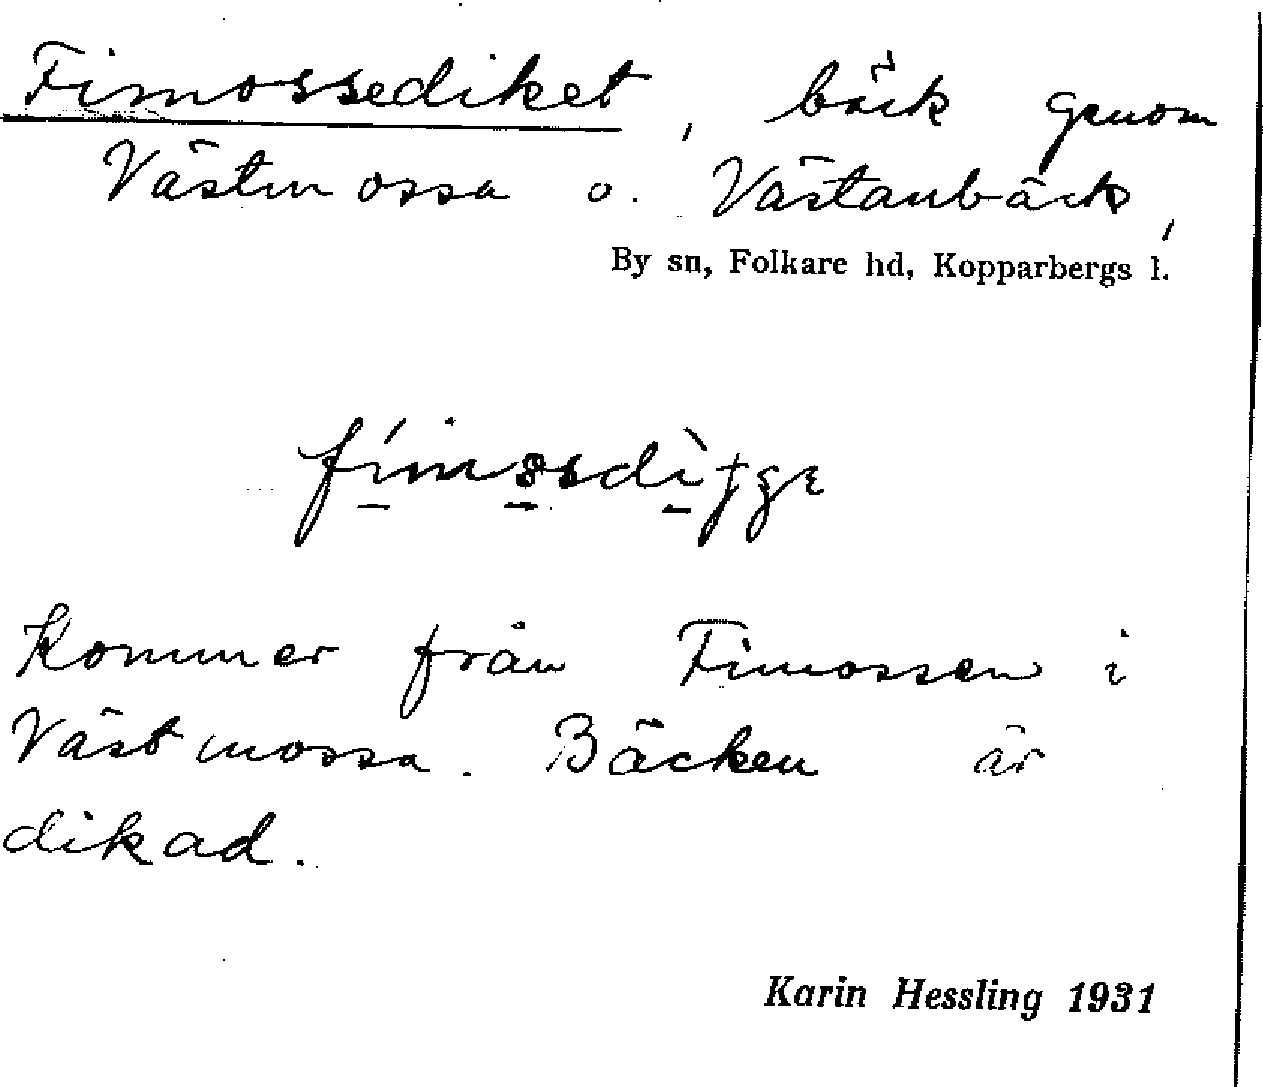 Fimossediket, bäck genom
Västmossa o. Västanbäck,
By sn, Folkare hd, Kopparbergs l.
Kommer från Fimossen i
Västmossa. Bäcken är
dikad.
Karin Hessling 1931